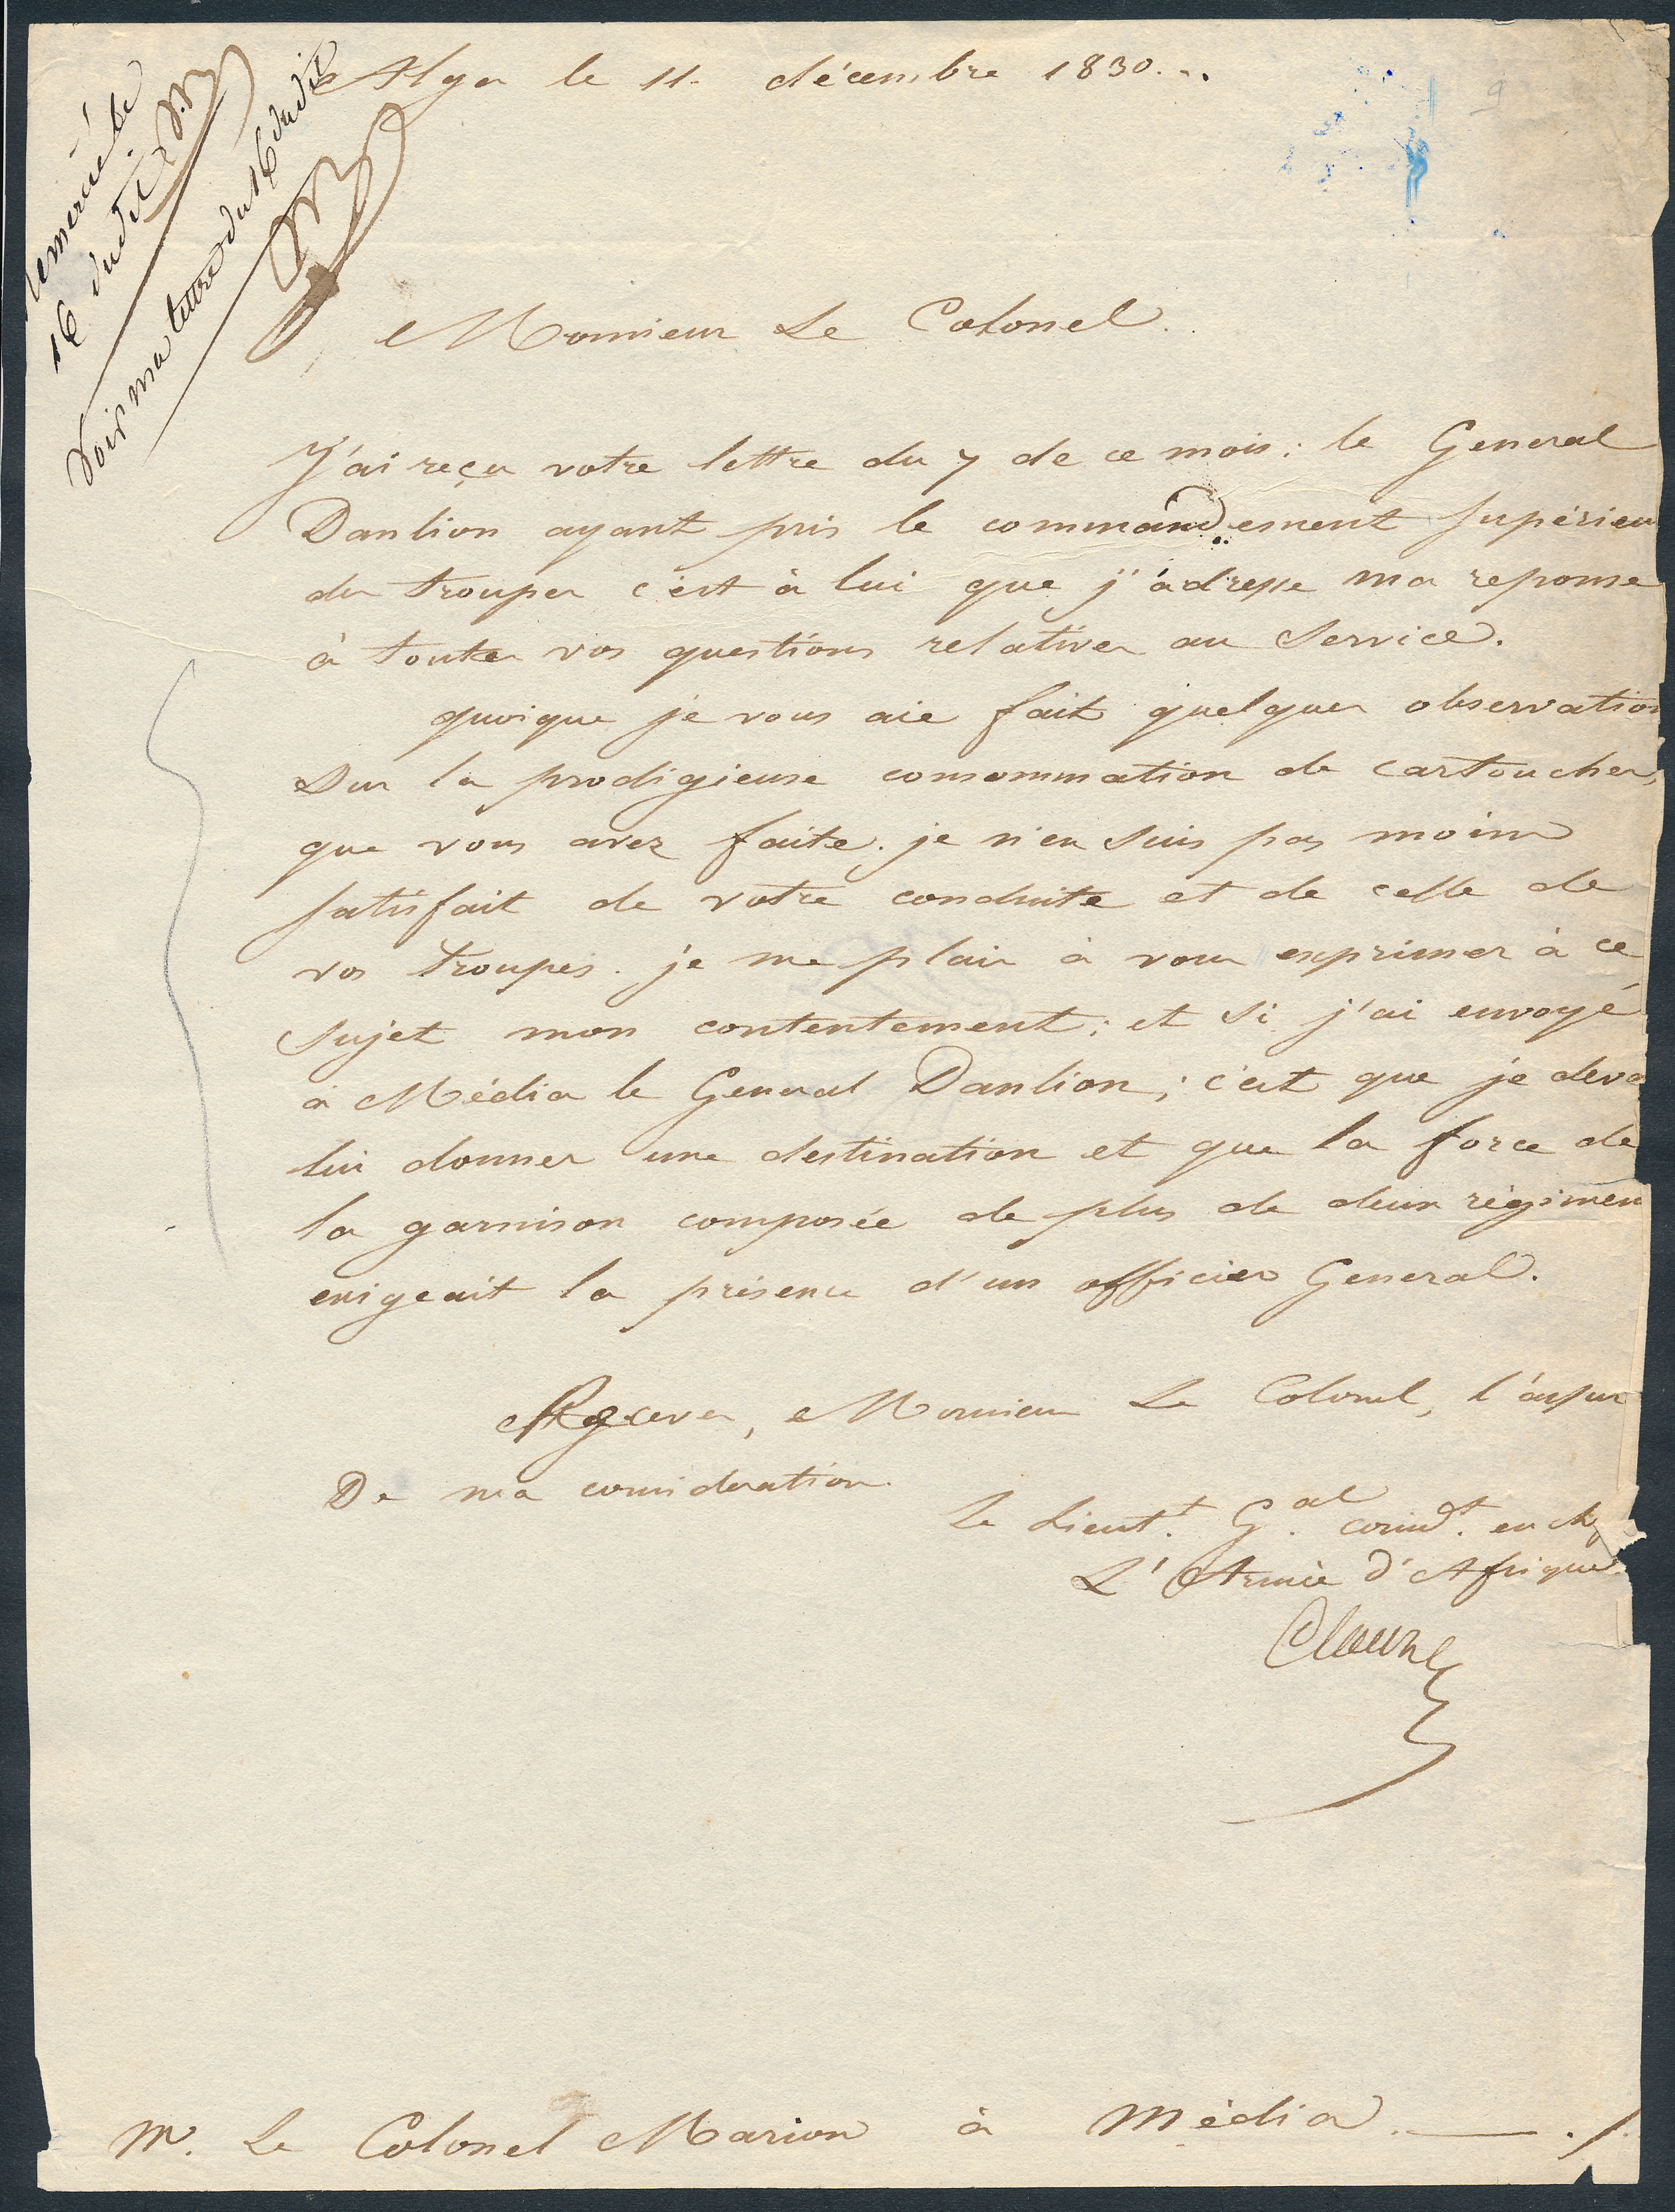 Alger le 11. décembre 1830...
9
remercié le
16 dudit
Voir ma lettre du 16 dudit
Monsieur Le Colonel.
J'ai reçu votre lettre du 7 de ce mois: le General
Danlion ayant pris le commandement supérieu
des troupes c'est à lui que j'adresse ma reponse
à toutes vos questions relatives au service.
quoique je vous aie fait quelques observation
sur la prodigieuse consommation de cartouches,
que vous avez faite. je n'en suis pas moins
satisfait de votre conduite et de celle de
vos troupes. je me plais à vous exprimer à ce
sujet mon contentement; et si j'ai envoyé
à Média le General Danlion; c'est que je deva
lui donner une destination et que la force de
la garnison composée de plus de deux régimen
exigeait la présence d'un officier General.
Recevez, Monsieur Le Colonel, l'assur
De ma consideration.
Le Lieut.t G.al comd.t en ch
L'Armée d'Afrique.
Clauzel
Mr. Le Colonel Marion à Média.